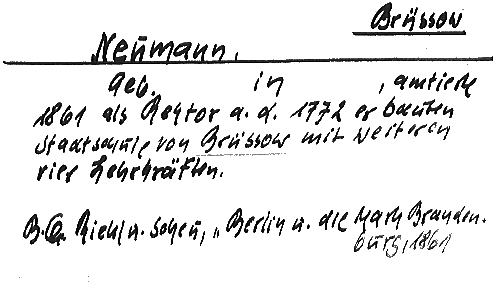 Brüssow
Neumann.
Geb. in , amtierte
1861 als Rektor a. d. 1772 erbauten
Stadtschule von Brüssow mit weiteren
vier Lehrkräften.
Riehl u. Scheu, „Berlin u. die Mark Branden-
burg, 1861